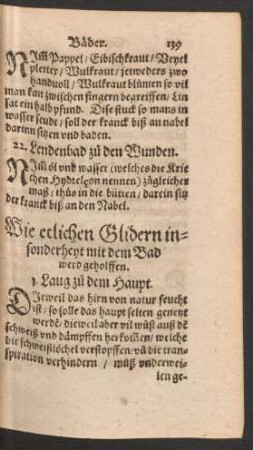 Bäder. 139
NIm̃ Pappel / Eibischkraut / Veyel
pletter / Wulkraut / jetweders zwo
handvoll / Wulkraut blümen so vil
man kan zwischen fingern begreiffen / Lin
sat ein halb pfund. Dise stuck so mans in
wasser seudt / soll der kranck biß an nabel
darinn sitzen vnd baden.
22. Lendenbad zů den Wunden.
NIm̃ öl vnd wasser (welches die Krie
chen Hydrelęon nennen) zůgleicher
maß / thůs in die bütten / darein sitz
der kranck biß an den Nabel.
Wie etlichen Glidern in-
sonderheyt mit dem Bad
werd geholffen.
1. Laug zů dem Haupt.
DIeweil das hirn von natur feucht
ist / so solle das haupt selten genetzt
werdẽ / dieweil aber vil wůst auß dẽ
schweiß vnd dämpffen herkom̃en / welche
die schweißlöchel verstopffen / vñ die tran-
spiration verhindern / můß vnderwei-
len ge-